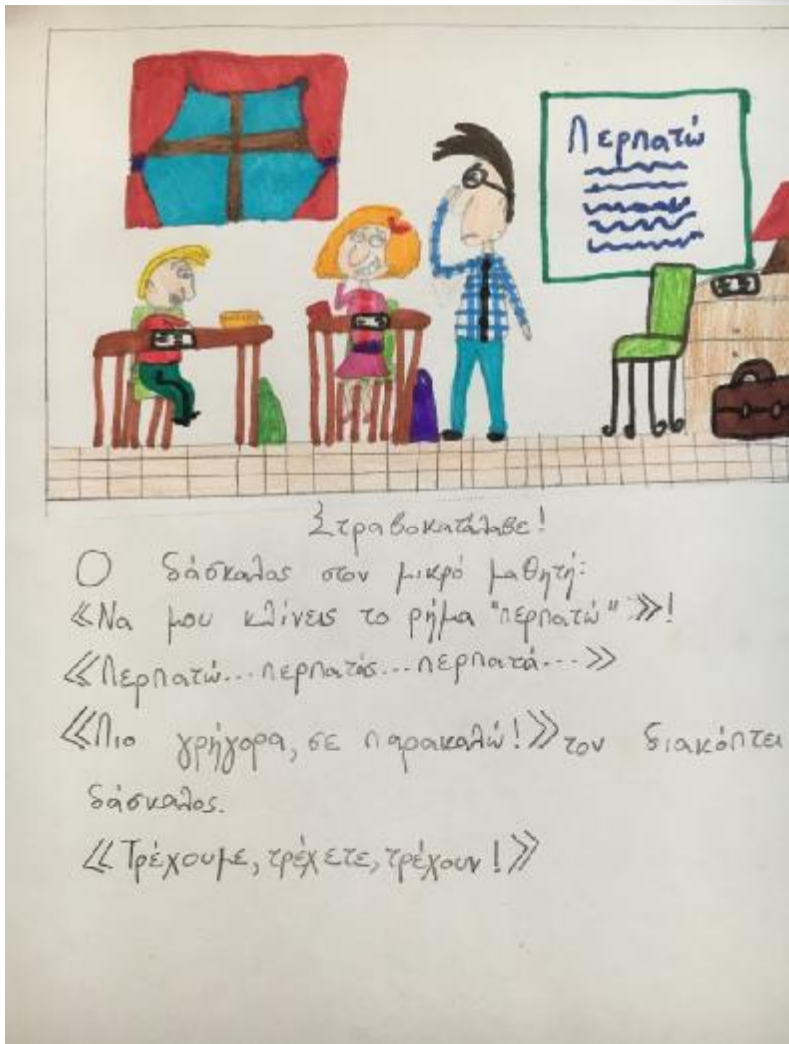 Περπατώ
Στραβοκατάλαβε!
Ο δάσκαλος στον μικρό μαθητή:
«Να μου κλίνεις το ρήμα "περπατώ"»!
«Περπατώ... περπατάς... περπατά...»
«Πιο γρήγορα, σε παρακαλώ!» τον διακόπτει
δάσκαλος.
«Τρέχουμε, τρέχετε, τρέχουν!»